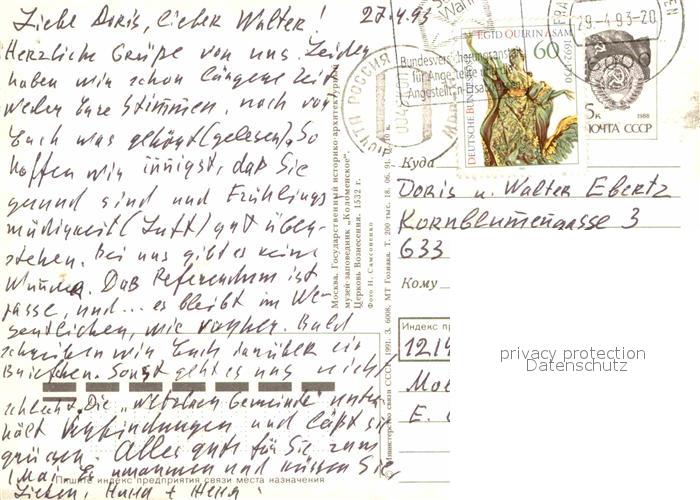 Liebe Doris, lieber Walter! 27.4.93
Herzliche Grüße von uns. Leider
haben wir schon längere Zeit
weder Eure Stimmen, noch von
Euch was gehört (gelesen). So
hoffen wir innigst, daß Sie
gesund sind und Frühlings
müdigkeit (Luft) gut über-
stehen. Bei uns gibt es keine
Wunder. Das Referendum ist
passe, und... es bleibt im We-
sentlichen, wie vorher. Bald
schreiben wir Euch darüber ein
Briefchen. Sonst geht es uns nicht
schlecht. Die „Wetzlarer Gemeinde" unter-
hält Verbindungen und läßt sie
grüssen. Alles gute für Sie zum
1 Mai. Es umarmen und küssen Sie,
Lieben, Нина + Женя.
Пишите индекс предприятия связи места назначения
Москва. Государственный историко-архитектурный
музей-заповедник „Коломенское".
Церковь Вознесения. 1532 г.
Фото Н. Самсоненко
© Министерство связи СССР, 1991. З. 6008. МТ Гознака. Т. 200 тыс. 18. 06. 91. Ц. 10 к.
ПОЧТА РОССИЯ
Bundesversicherungsanstalt
für Angestellte
Angestellten-Ersatz
EGID QUIRIN ASAM
1692-1750
60
DEUTSCHE BUNDESPOST
29-4.93-20
6000
5к 1988
ПОЧТА СССР
Куда
Doris u. Walter Ebertz
Kornblumengasse 3
633
Кому
Индекс пр
1214
Мос
Е.
privacy protection
Datenschutz